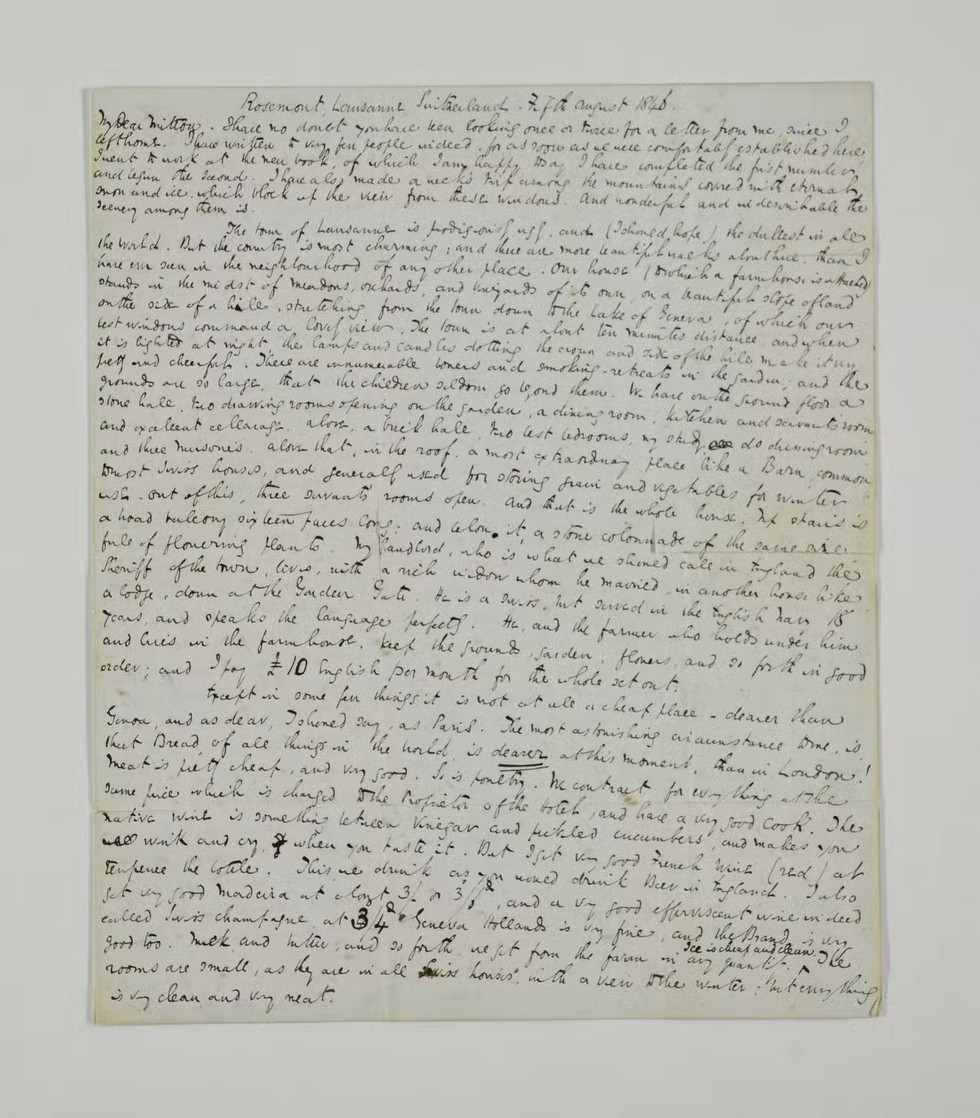 Rosemont, Lausanne Switzerland. August 1846.
My Dear Mitton. I have no doubt you have been looking once or twice for a letter from me, since I
left home. I have written to very few people indeed, for as soon as we were comfortably established here
I went to work at the new book, of which I am happy to say I have completed the first number
and begun the second. I have also made a week's trip among the mountains covered with eternal
snow and ice, which block up the view from these windows. And wonderful and indescribable the
scenery among them is.
The town of Lausanne is prodigiously ugly, and (I should hope) the dullest in all
the world. But the country is most charming; and there are more beautiful walks about here, than I
have ever seen in the neighbourhood of any other place. Our house (to which a farmhouse is attached)
stands in the midst of meadows, orchards, and vineyards of its own, on a beautiful slope of land
on the side of a hill, stretching from the town down to the Lake of Geneva, of which our
best windows command a lovely view. The town is at about ten minutes distance, and when
it is lighted at night, the lamps and candles dotting the crown and side of the hill, make it very
pretty and cheerful. There are innumerable bowers and smoking-retreats in the garden; and the
grounds are so large, that the children seldom go beyond them. We have on the ground floor a
stone hall, two drawing rooms opening on the garden, a dining room, kitchen and servants room
and excellent cellarage. above, a brick hall, two best bedrooms, my study do dressing room
and three nurseries. above that, in the roof, a most extraordinary place like a Barn, common
to most Swiss houses, and generally used for storing grain and vegetables for winter
use. out of this, three servants' rooms open. And that is the whole house. Up stairs is
a broad balcony sixteen paces long: and below it, a stone colonnade of the same size
full of flowering plants. My Landlord, who is what we should call in England the
Sheriff of the town, lives, with a rich widow whom he married, in another house like
a lodge, down at the Garden Gate. He is a Swiss, but served in the English Navy 18
years, and speaks the language perfectly. He, and the farmer who holds under him
and lives in the farmhouse, keep the grounds, garden, flowers, and so forth in good
order; and I pay £10 English per month for the whole set out.
Except in some few things it is not at all a cheap place - dearer than
Genoa, and as dear, I should say, as Paris. The most astonishing circumstance to me, is
that Bread, of all things in the world, is dearer at this moment, than in London!
Meat is pretty cheap, and very good. So is poultry. We contract for everything at the
same price which is charged to the Proprietor of the Hotel, and have a very good cook. The
native wine is something between vinegar and pickled cucumbers, and makes you
wink and cry when you taste it. But I get very good French wine (red) at
tenpence the bottle. This, we drink as you would drink Beer in England. I also
get very good Madeira at about 3/ or and a very good effervescent wine indeed
called Swiss champagne, at Geneva Hollands is very fine, and the Brandy is very
good too. Milk, and butter, and so forth, we get from the farm in any quantity. Ice is cheap and clean. The
rooms are small, as they are in all Swiss houses, with a view to the winter: but everything
is very clean and very neat.